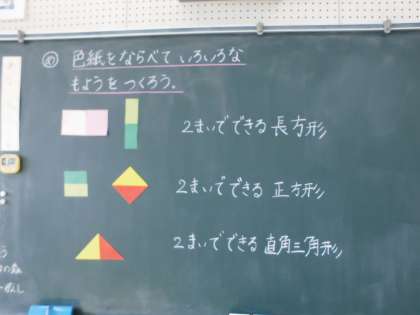 め 色紙をならべて いろいろな
もようを つくろう。
2まいでできる 長方形
2まいでできる 正方形
2まいでできる 直角三角形